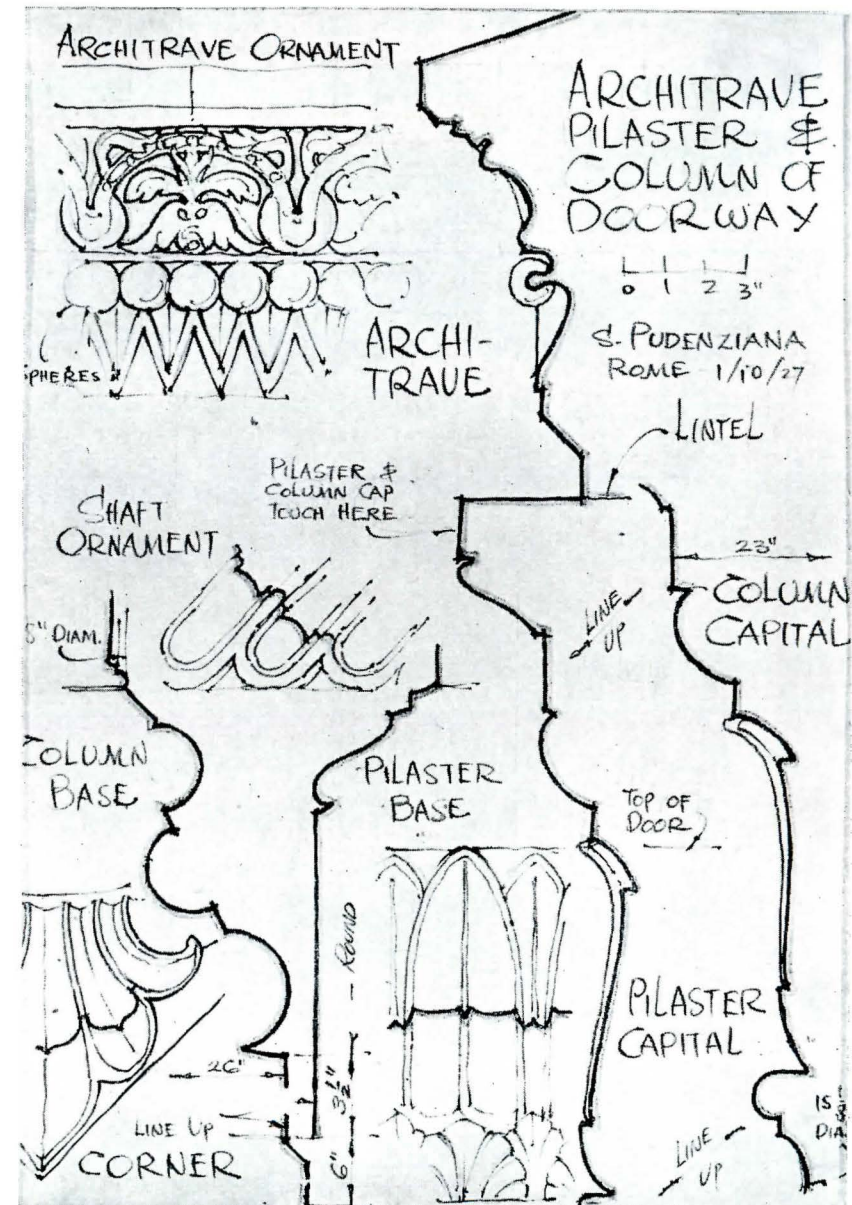 ARCHITRAVE ORNAMENT
ARCHITRAVE
PILASTER &
COLUMN OF
DOORWAY
0 1 2 3"
S. PUDENZIANA
ROME 1/10/27
ARCHI-
TRAVE
SPHERES
LINTEL
PILASTER &
COLUMN CAP
TOUCH HERE
SHAFT
ORNAMENT
23"
COLUMN
CAPITAL
LINE
UP
" DIAM.
COLUMN
BASE
PILASTER
BASE
TOP OF
DOOR
ROUND
PILASTER
CAPITAL
26"
3½"
LINE UP
CORNER
6"
LINE
UP
15
DIA